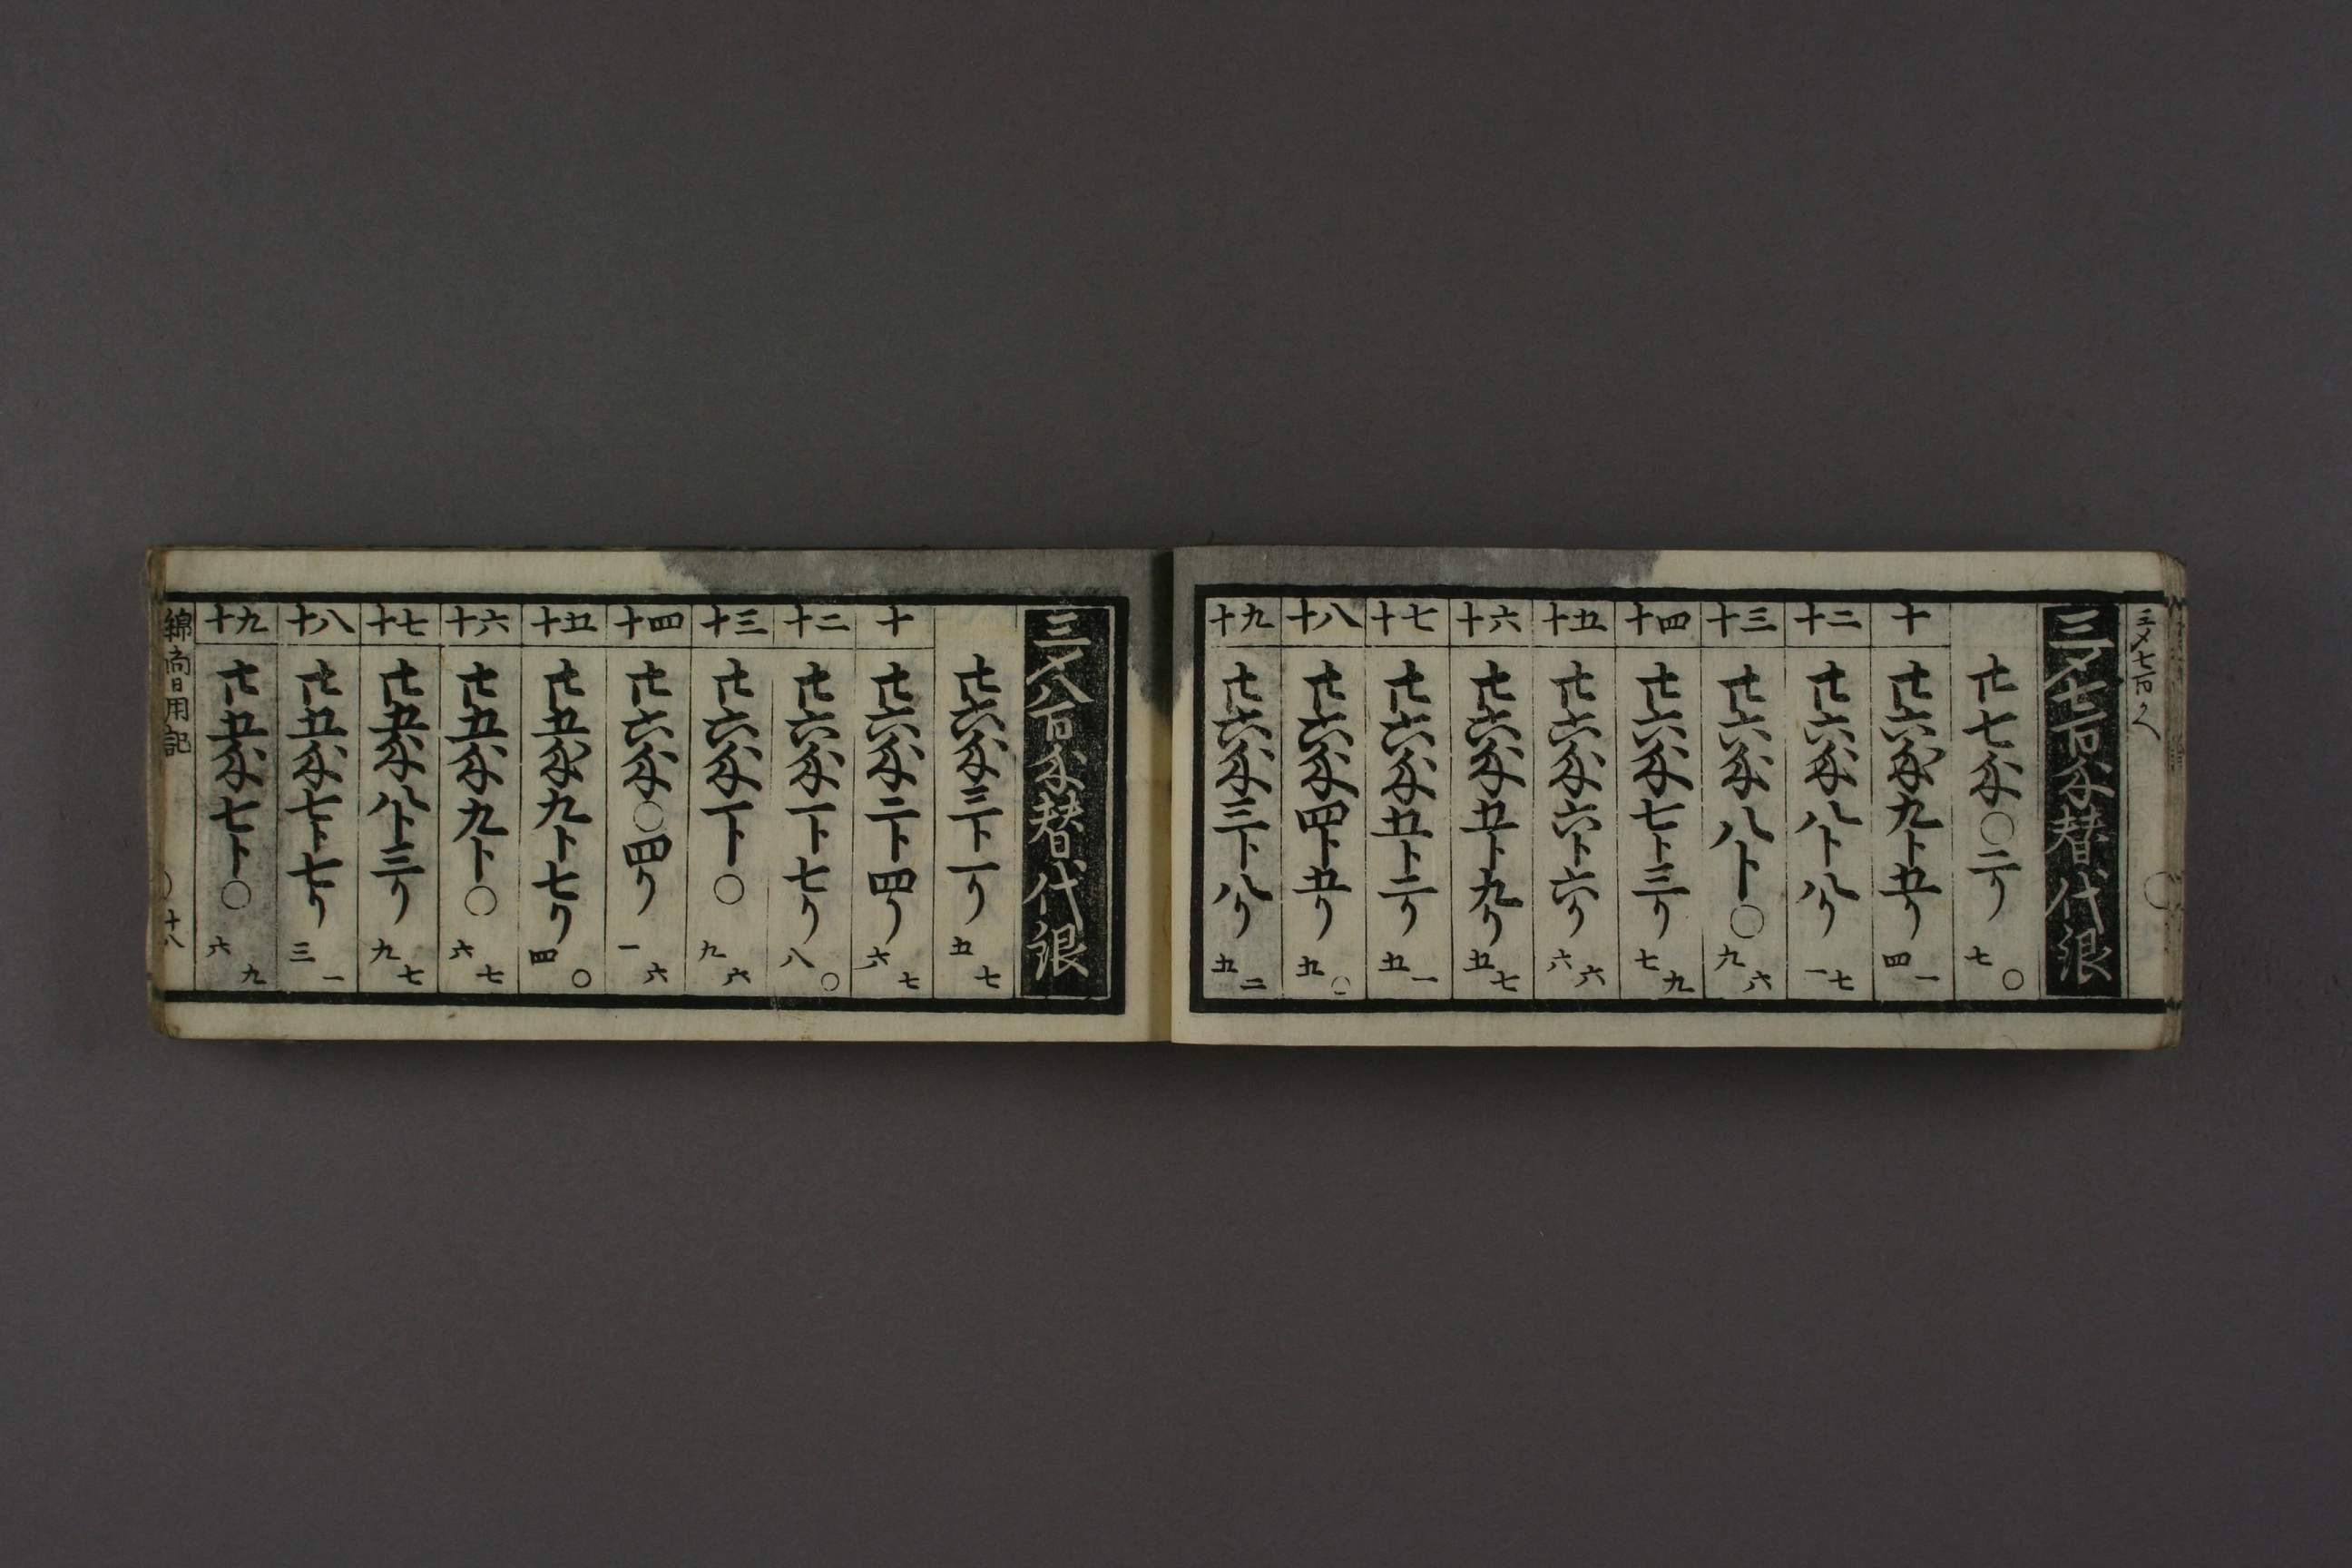 三〆七百ゟ
三〆七百匁替代銀
廿七匁〇二リ 七〇
十 廿六匁九卜五リ 四一
二十 廿六匁八卜八リ 一七
三十 廿六匁八卜〇 九六
四十 廿六匁七卜三リ 七九
五十 廿六匁六卜六リ 六六
六十 廿六匁五卜九リ 五七
七十 廿六匁五卜二リ 五一
八十 廿六匁四卜五リ 五〇
九十 廿六匁三卜八リ 五二
三〆八百匁替代銀
廿六匁三卜一リ 五七
十 廿六匁二卜四リ 六七
二十 廿六匁一卜七リ 八〇
三十 廿六匁一卜〇 九六
四十 廿六匁〇四リ 一六
五十 廿五匁九卜七リ 四〇
六十 廿五匁九卜〇 六七
七十 廿五匁八卜三リ 九七
八十 廿五匁七卜七リ 三一
九十 廿五匁七卜〇 六九
日用記
十八